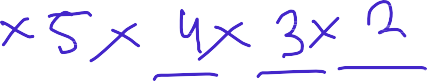 ×5×4×3×2